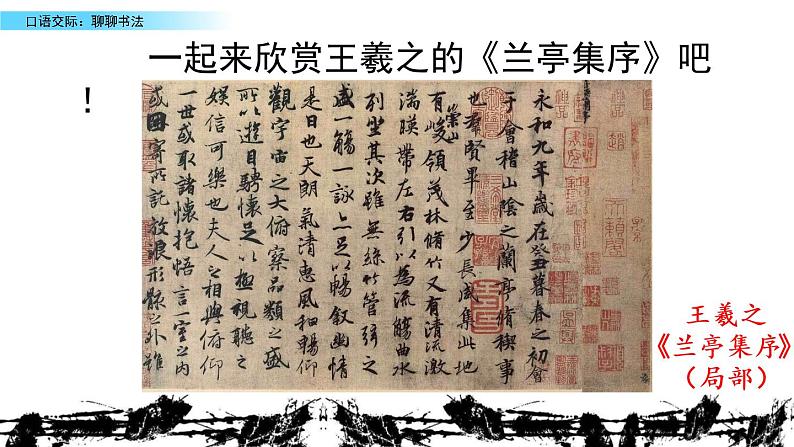 口语交际：聊聊书法
一起来欣赏王羲之的《兰亭集序》吧
！
永和九年歲在癸丑暮春之初會
于會稽山陰之蘭亭脩稧事
也羣賢畢至少長咸集此地
有崇山峻領茂林脩竹又有清流激
湍暎帶左右引以為流觴曲水
列坐其次雖無絲竹管弦之
盛一觴一詠亦足以暢叙幽情
是日也天朗氣清惠風和暢仰
觀宇宙之大俯察品類之盛
所以遊目騁懷足以極視聽之
娛信可樂也夫人之相與俯仰
一世或取諸懷抱悟言一室之內
或因寄所託放浪形骸之外雖
王羲之
《兰亭集序》
（局部）